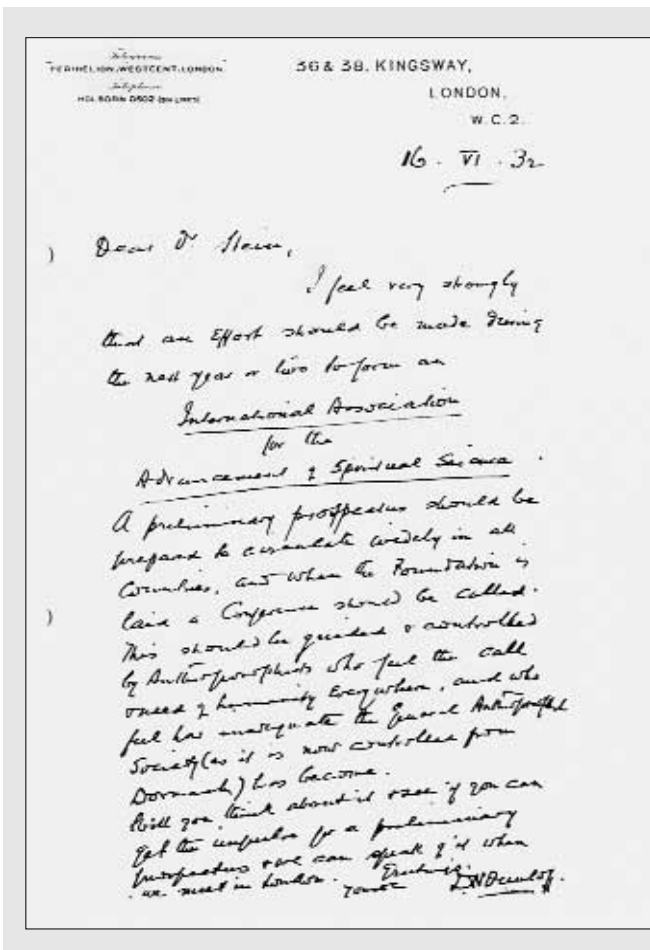 Telegrams
"PERIHELION, WESTCENT, LONDON."
Telephone
HOLBORN 0502 (SIX LINES)
36 & 38, KINGSWAY,
LONDON,
W.C.2.
16 . VI . 32
Dear Dr Stein,
I feel very strongly
that an Effort should be made during
the next year or two to form an
International Association
for the
Advancement of Spiritual Science .
A preliminary prospectus should be
prepared to circulate widely in all
Countries, and when the Foundation is
laid a Conference should be called.
This should be guided & controlled
by Anthroposophists who feel the call
& need of humanity Everywhere, and who
feel how inadequate the General Anthroposophical
Society (as it is now controlled from
Dornach) has become.
Will you think about it & see if you can
get the impulse for a preliminary
prospectus & we can speak of it when
we meet in London.
Yours
D N Dunlop.